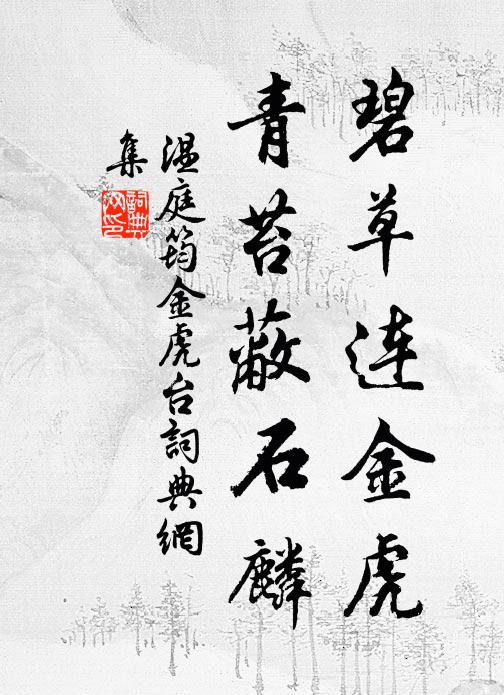 碧草连金虎
青苔蔽石麟
温庭筠金虎台詞典網
集
詞典网印